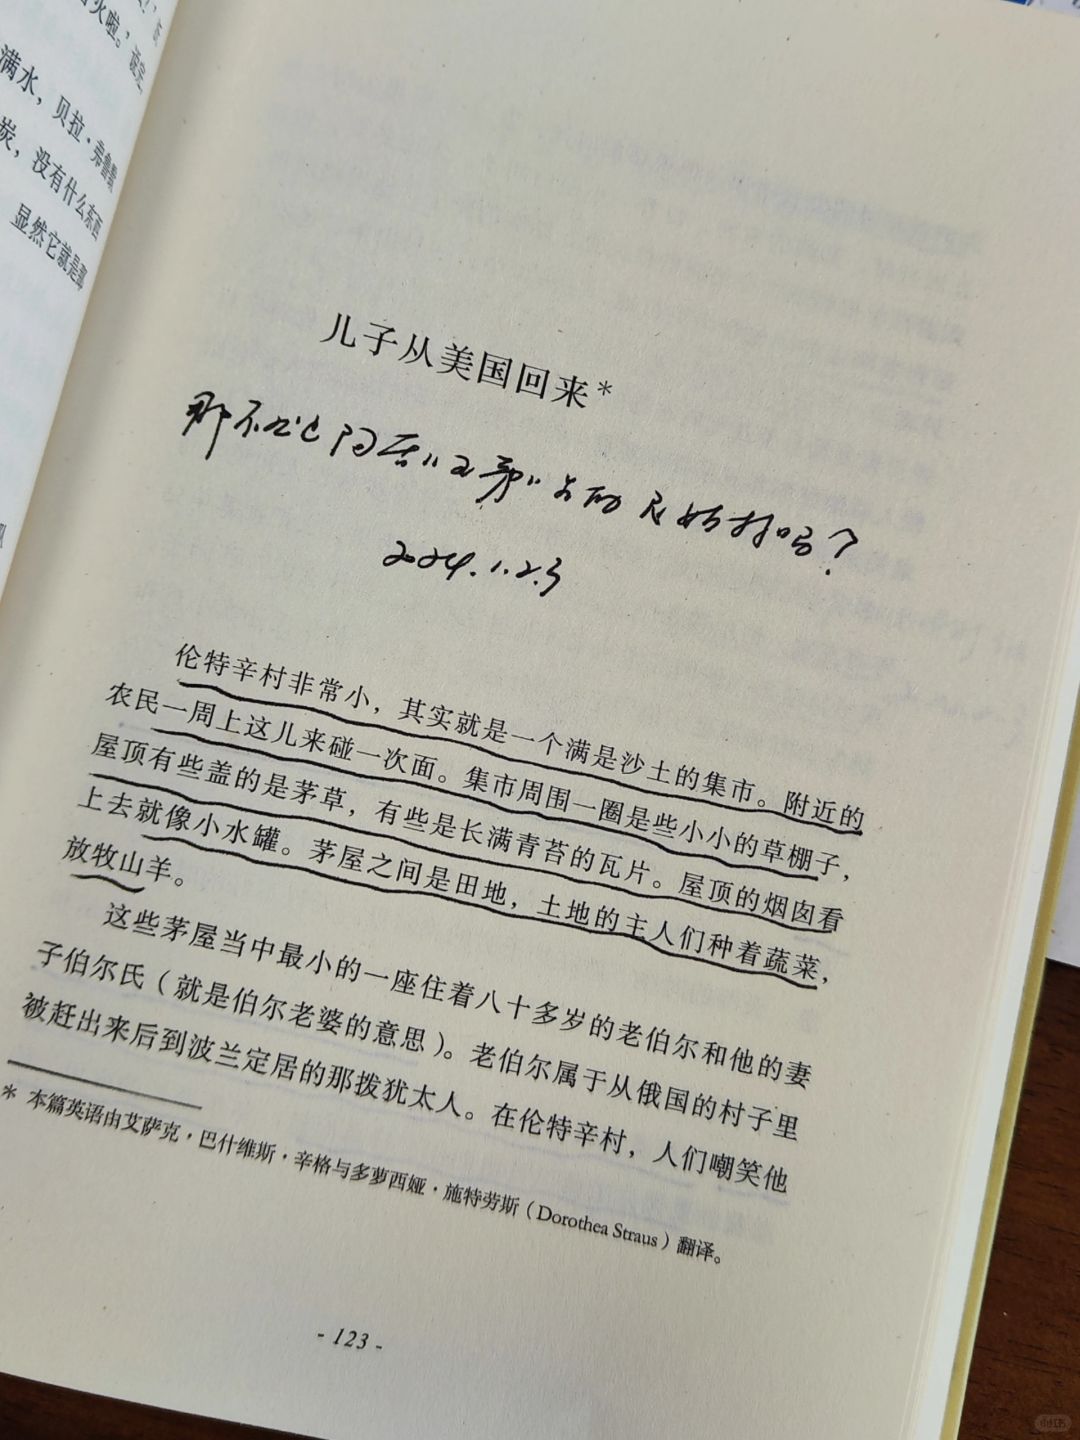 火啦。
满水，贝拉·弗鲁
炭，没有什么东西
显然它就是那
儿子从美国回来*
2024.1.23
伦特辛村非常小，其实就是一个满是沙土的集市。附近的
农民一周上这儿来碰一次面。集市周围一圈是些小小的草棚子，
屋顶有些盖的是茅草，有些是长满青苔的瓦片。屋顶的烟囱看
上去就像小水罐。茅屋之间是田地，土地的主人们种着蔬菜，
放牧山羊。
这些茅屋当中最小的一座住着八十多岁的老伯尔和他的妻
子伯尔氏（就是伯尔老婆的意思）。老伯尔属于从俄国的村子里
被赶出来后到波兰定居的那拨犹太人。在伦特辛村，人们嘲笑他
* 本篇英语由艾萨克·巴什维斯·辛格与多萝西娅·施特劳斯（Dorothea Straus）翻译。
- 123 -